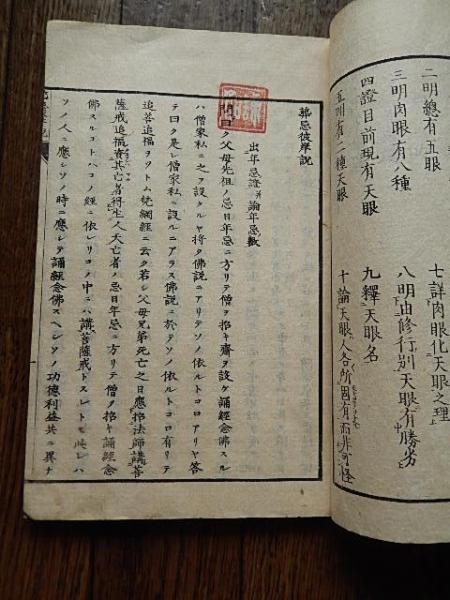 二明總有五眼
三明肉眼有八種
四證目前現有天眼
五明有二種天眼
七詳肉眼化天眼之理
八明由修行別天眼有勝劣
九釋天眼名
十論天眼人各所固有而非可怪
葬忌彼岸説
出年忌證并論年忌數
曰ク父母先祖ノ忌日年忌ニ方リテ僧ヲ招キ齋ヲ設ケ誦經念佛スル
ハ僧家私ニ之ヲ設タルヤ將タ佛説ニアリテソノ依ルトコロアリヤ答
テ曰ク是レ僧家私ニ設ルニアラス佛説ニ於テソノ依ルトコロ有リテ
追荅追福ヲツトム梵綱經ニ云ク若シ父母兄弟死亡之日應招法師講菩
薩戒追福資其亡者得生人天亡者ノ忌日年忌ニ方リテ僧ヲ招キ誦經念
佛スルコトハコノ經ニ依レリコノ中ニハ講菩薩戒トスレトモ此レハ
ソノ人ニ應シソノ時ニ應シテ誦經念佛スヘシソノ功德利益共ニ異ナ